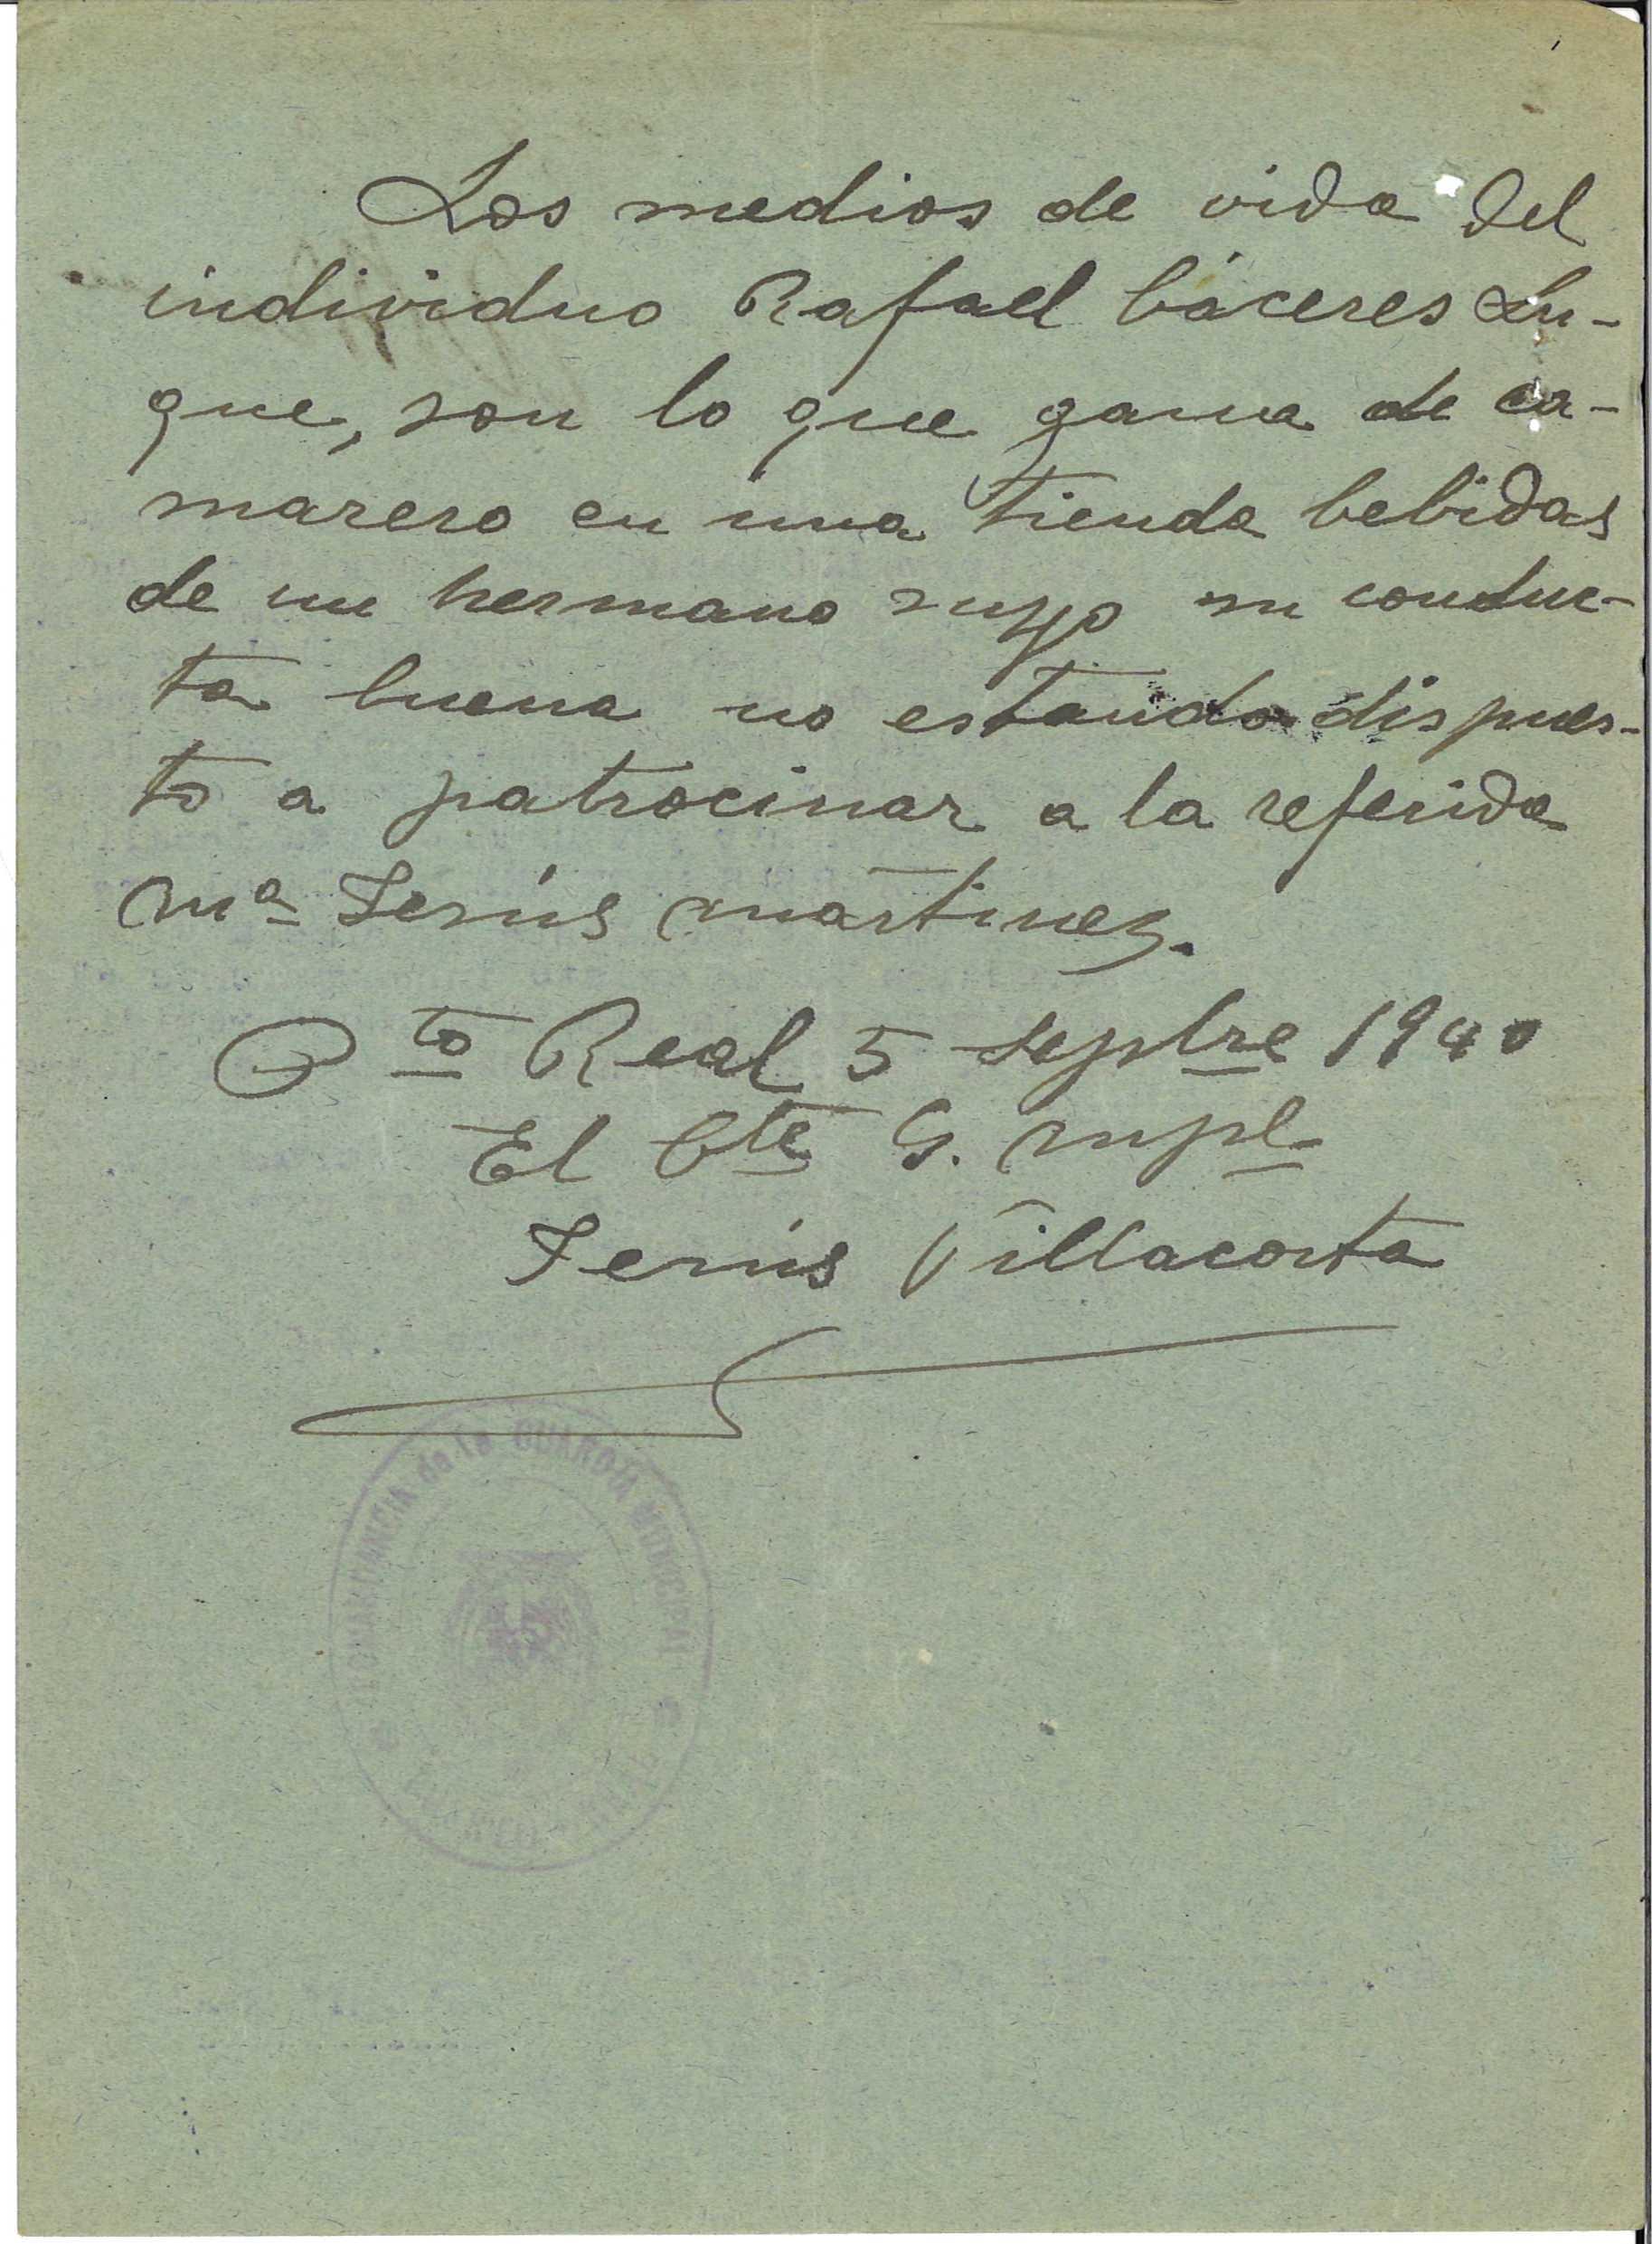 Los medios de vida del
individuo Rafael Cáceres Lu-
que, son lo que gana de ca-
marero en una tienda bebidas
de un hermano suyo su conduc-
ta buena no estando dispues-
to a patrocinar a la referida
Mª Jesús Martinez.
Pto Real 5 Septbre 1940
El Cte G. Mpl
Jesús Villacorta
COMANDANCIA de la GUARDIA MUNICIPAL